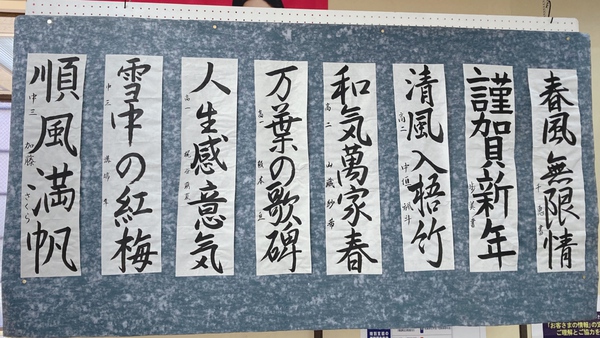 春風無限情
謹賀新年
清風入梧竹
高二
和気萬家春
高二
万葉の歌碑
高一
人生感意気
高一
雪中の紅梅
中三
順風満帆
中三 加藤 さくら
「お客さまの情報」の
ご理解とご協力を